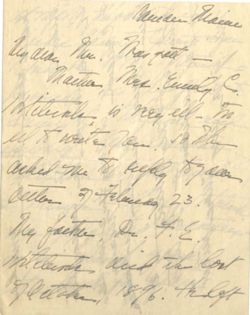 Camden Maine
My dear Mrs.
Mother Mrs. Emily C.
is very ill - too
ill to write you. So she
asked me to reply to your
letter of February 23.
My father, Dr. F. E.
died the last
of October, 1896. He left